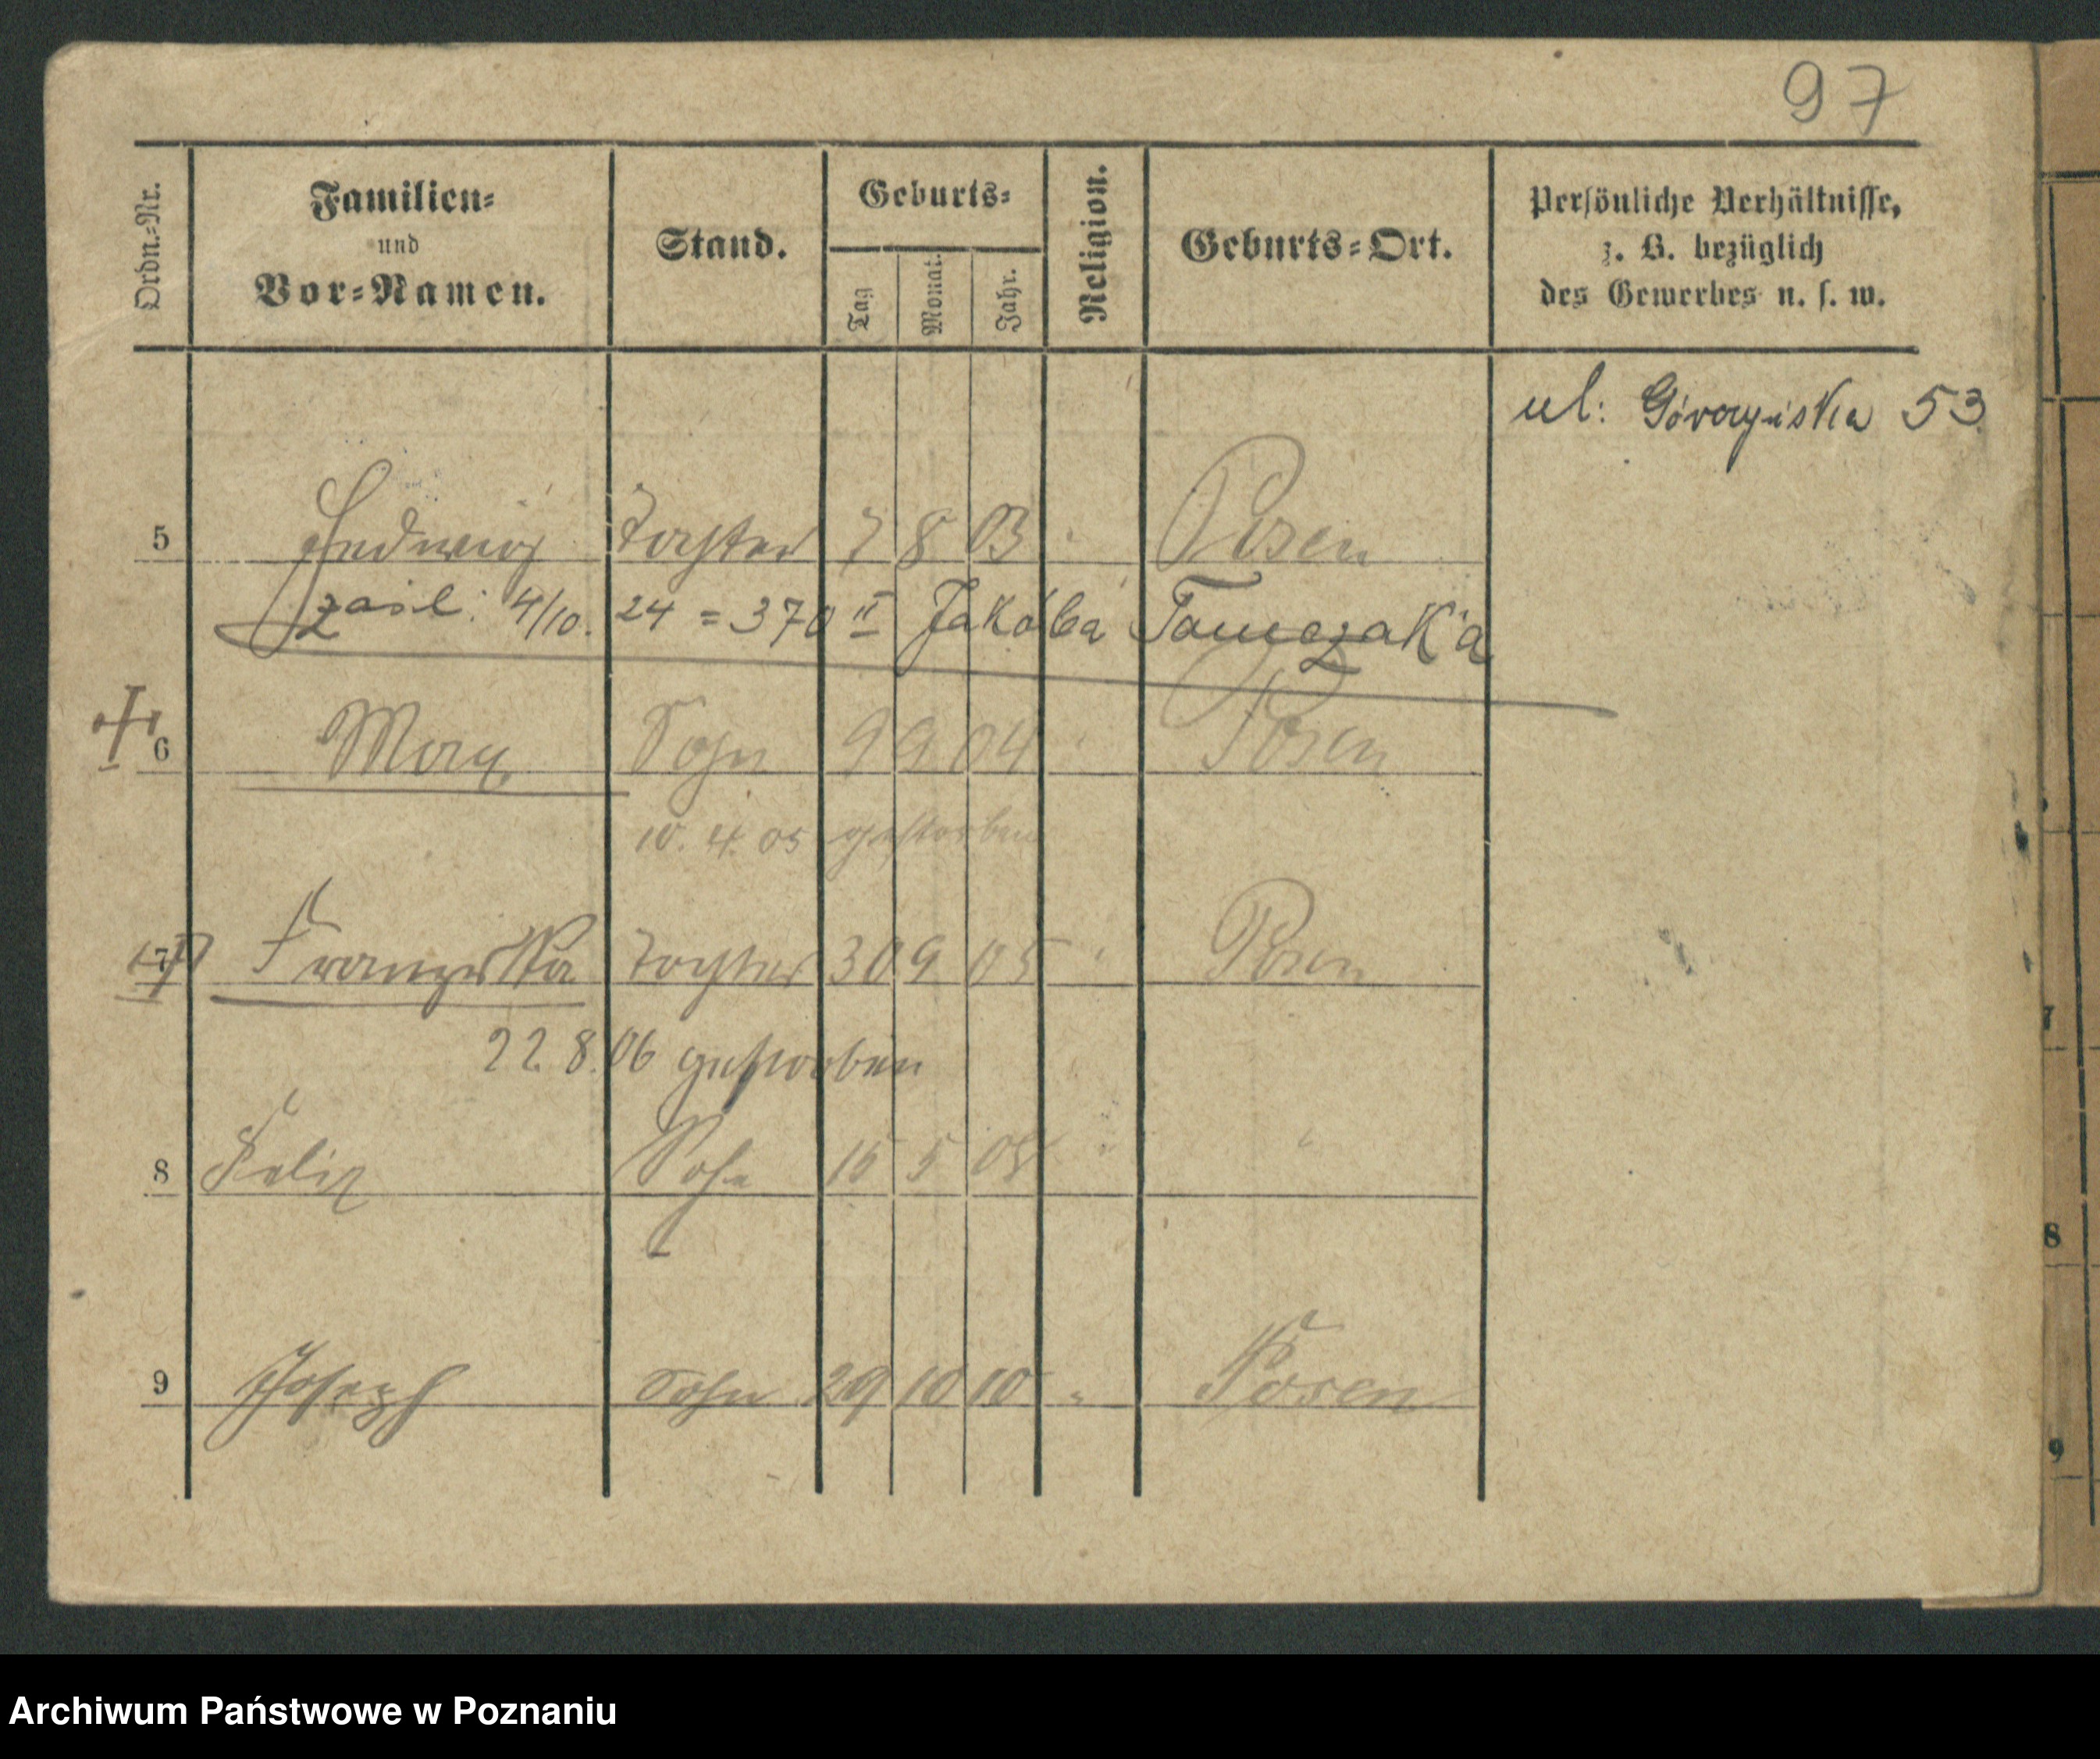 97
Ordn.-Nr.
Familien-
und
Vor-Namen.
Stand.
Geburts-
Tag
Monat.
Jahr.
Religion.
Geburts-Ort.
Persönliche Verhältnisse,
z. B. bezüglich
des Gewerbes u. s. w.
ul: Górczyńska 53
5 Hedwig Tochter 7 8 03 " Posen
zasł: 4/10. 24 = 370 II Jakóba Tomczaka
6 Max Sohn 9 9 04 " Posen
10. 4. 05 gestorben
7 Franziska Tochter 30 9 05 " Posen
22. 8. 06 gestorben
8 Felix Sohn 15 5 08 " "
9 Joseph Sohn 29 10 10 " Posen
7
8
9
Archiwum Państwowe w Poznaniu